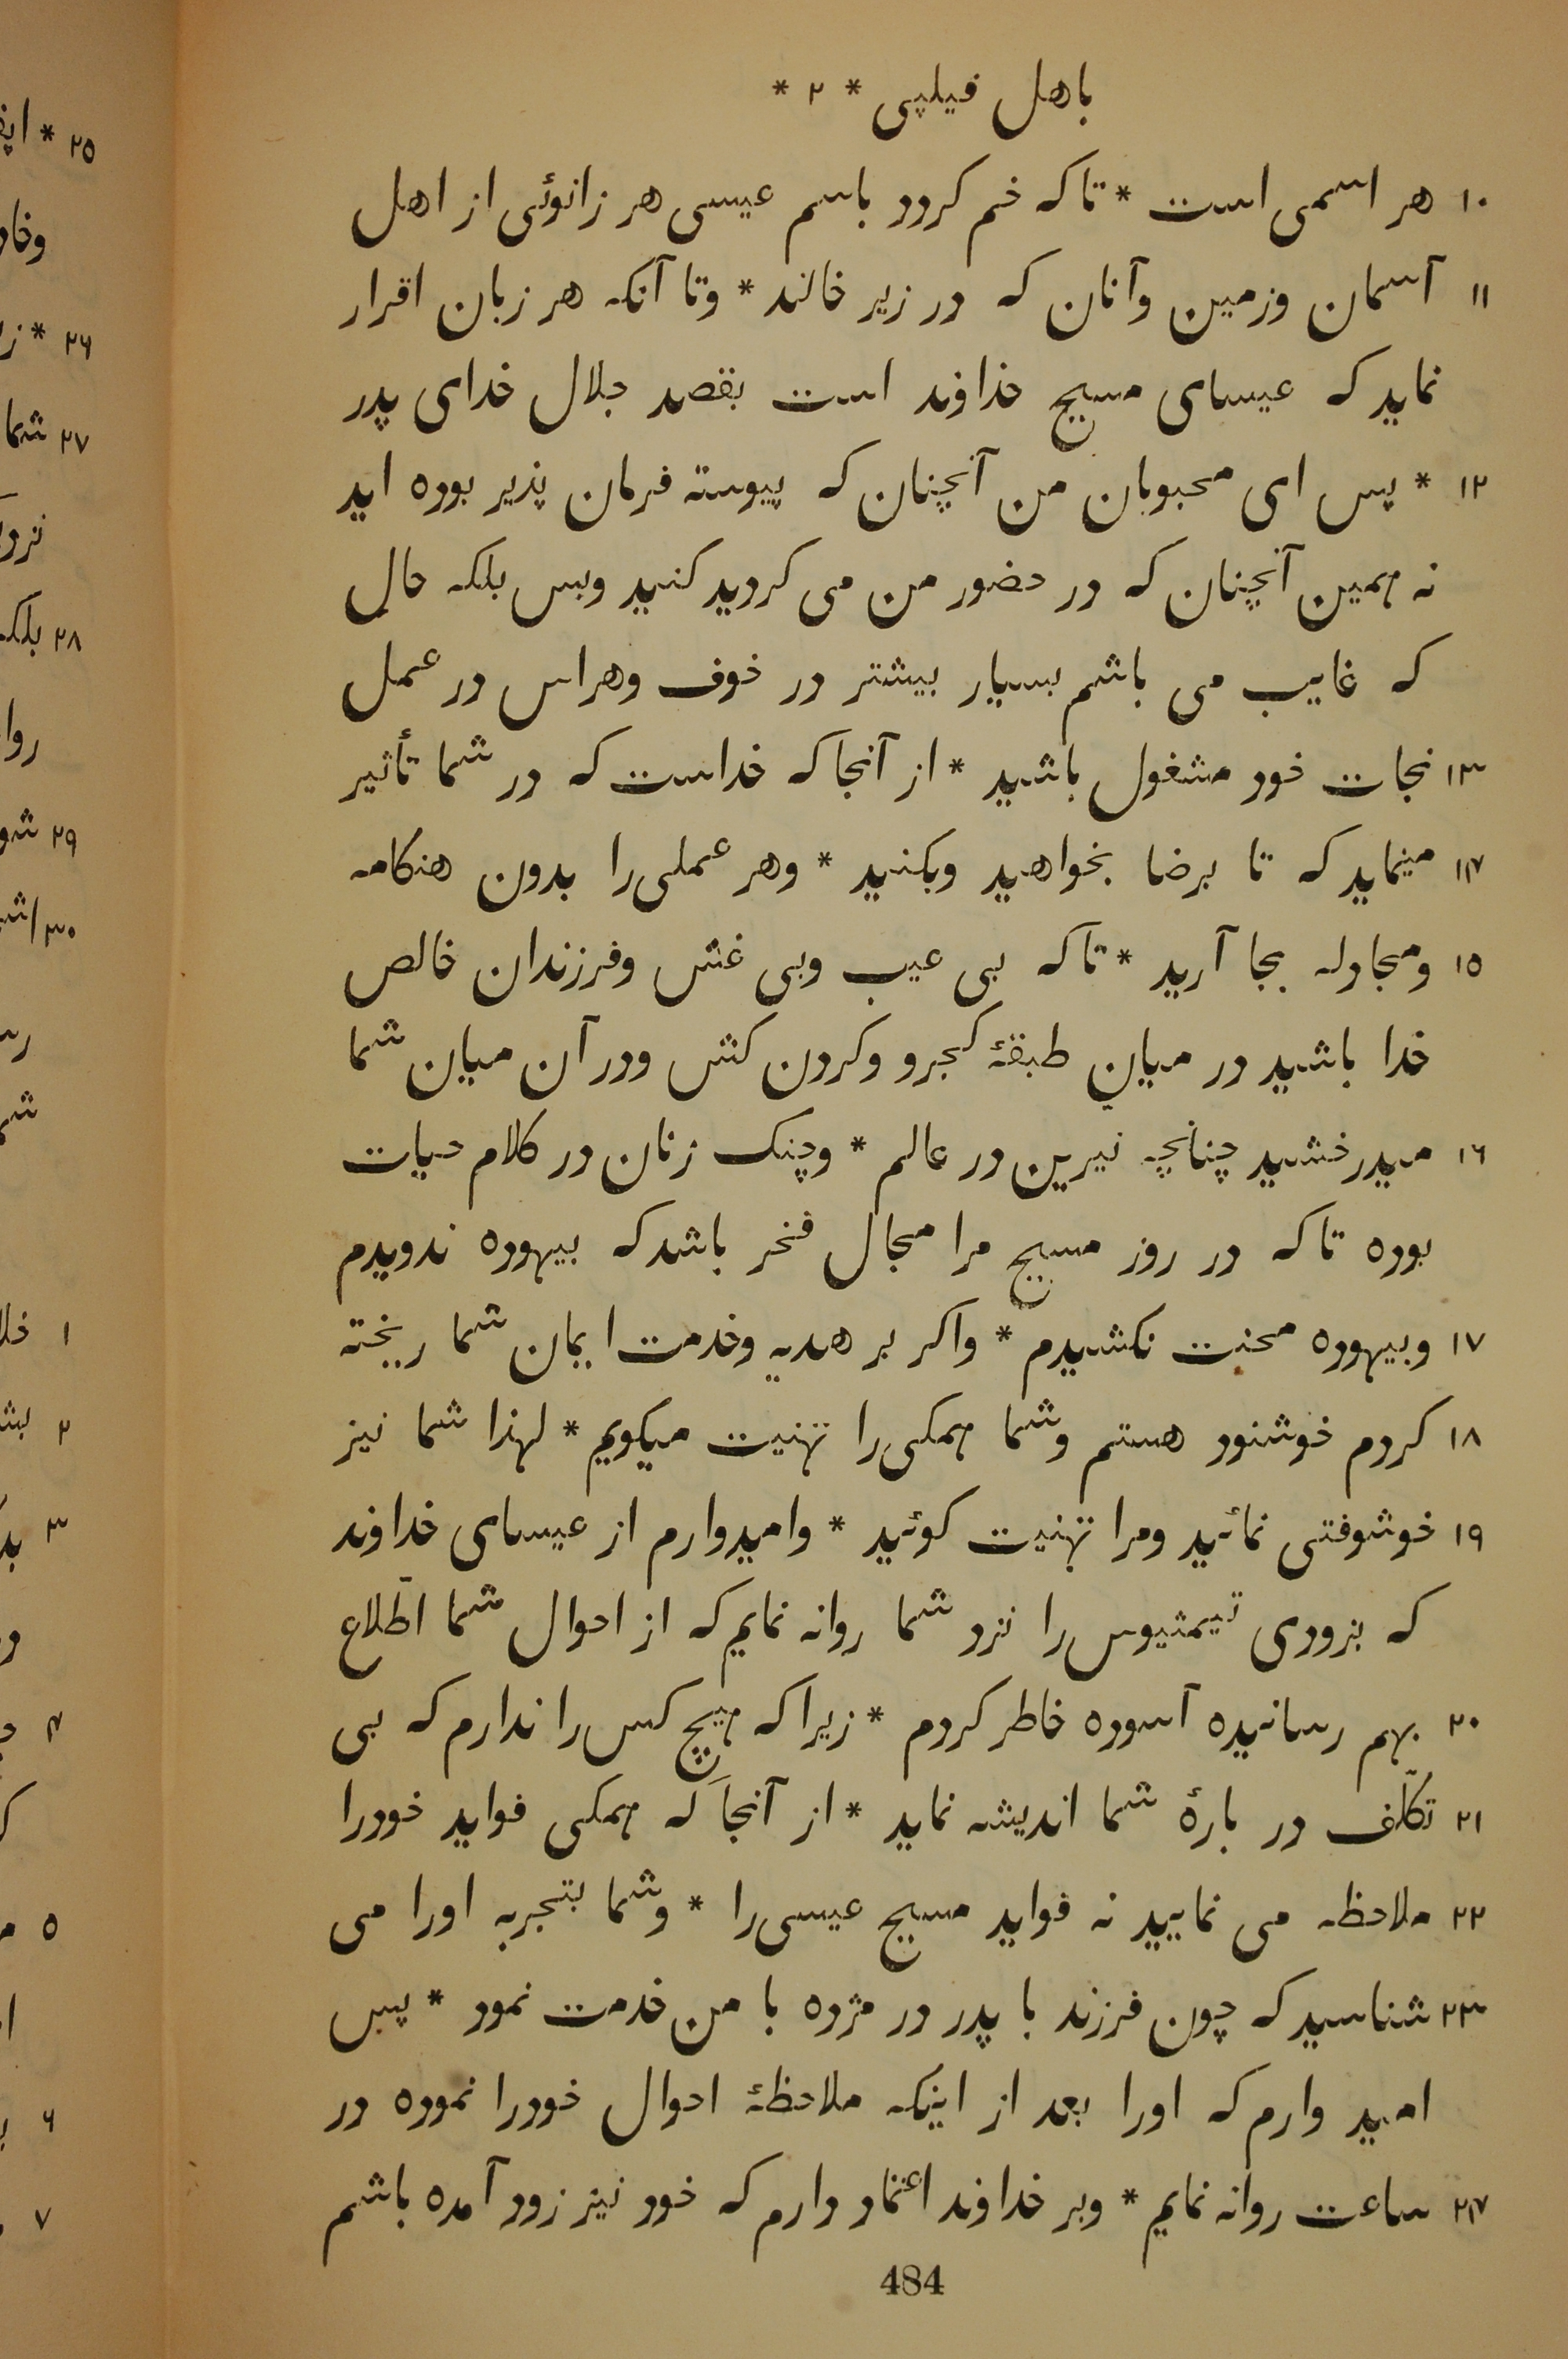 باهل فیلپی * ۲ *
۱۰ هر اسمی است * تا که خم کردد باسم عیسی هر زانوئی از اهل
۱۱ آسمان وزمین وآنان که در زیر خاکند * وتا آنکه هر زبان اقرار
نماید که عیسای مسیح خداوند است بقصد جلال خدای پدر
۱۲ * پس ای محبوبان من آنچنان که پیوسته فرمان پذیر بوده اید
نه همین آنچنان که در حضور من می کردید کنید وبس بلکه حال
که غایب می باشم بسیار بیشتر در خوف وهراس در عمل
۱۳ نجات خود مشغول باشید * از آنجا که خداست که در شما تأثیر
۱۴ مینماید که تا برضا بخواهید وبکنید * وهر عملی را بدون هنکامه
۱۵ ومجادله بجا آرید * تا که بی عیب وبی غش وفرزندان خالص
خدا باشید در میان طبقۀ کجرو وکردن کش ودر آن میان شما
۱۶ میدرخشید چنانچه نیرین در عالم * وچنک زنان در کلام حیات
بوده تا که در روز مسیح مرا مجال فخر باشد که بیهوده ندویدم
۱۷ وبیهوده محنت نکشیدم * واکر بر هدیه وخدمت ایمان شما ریخته
۱۸ کردم خوشنود هستم وشما همکی را تهنیت میکویم * لهذا شما نیز
۱۹ خوشوقتی نمائید ومرا تهنیت کوئید * وامیدوارم از عیسای خداوند
که بزودی تیمثیوس را نزد شما روانه نمایم که از احوال شما اطّلاع
۲۰ بهم رسانیده آسوده خاطر کردم * زیرا که هیچ کس را ندارم که بی
۲۱ تکلّف در بارۀ شما اندیشه نماید * از آنجا که همکی فواید خودرا
۲۲ ملاحظه می نمایید نه فواید مسیح عیسی را * وشما بتجربه اورا می
۲۳ شناسید که چون فرزند با پدر در مژده با من خدمت نمود * پس
امید وارم که اورا بعد از اینکه ملاحظۀ احوال خودرا نموده در
۲۴ ساعت روانه نمایم * وبر خداوند اعتماد دارم که خود نیز زود آمده باشم
484